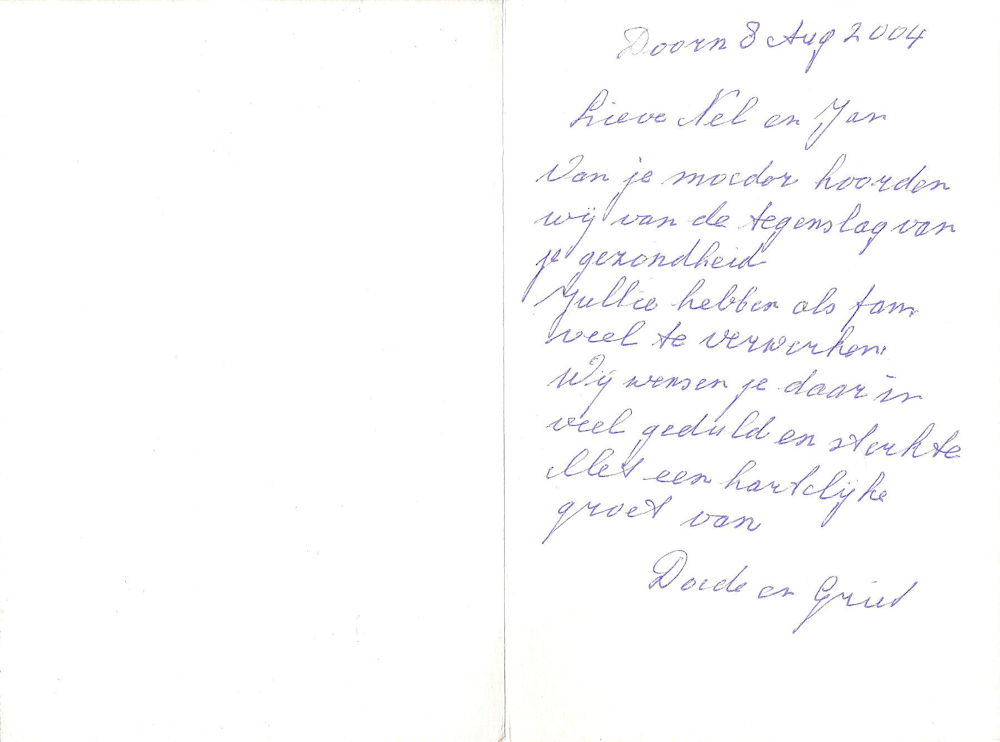 Doorn 8 Aug 2004
Lieve Nel en Jan
Van je moeder hoorden
wij van de tegenslag van
je gezondheid
Jullie hebben als fam
veel te verwerken
Wij wensen je daar in
veel geduld en sterkte
Met een hartelijke
groet van
Doede en Griet